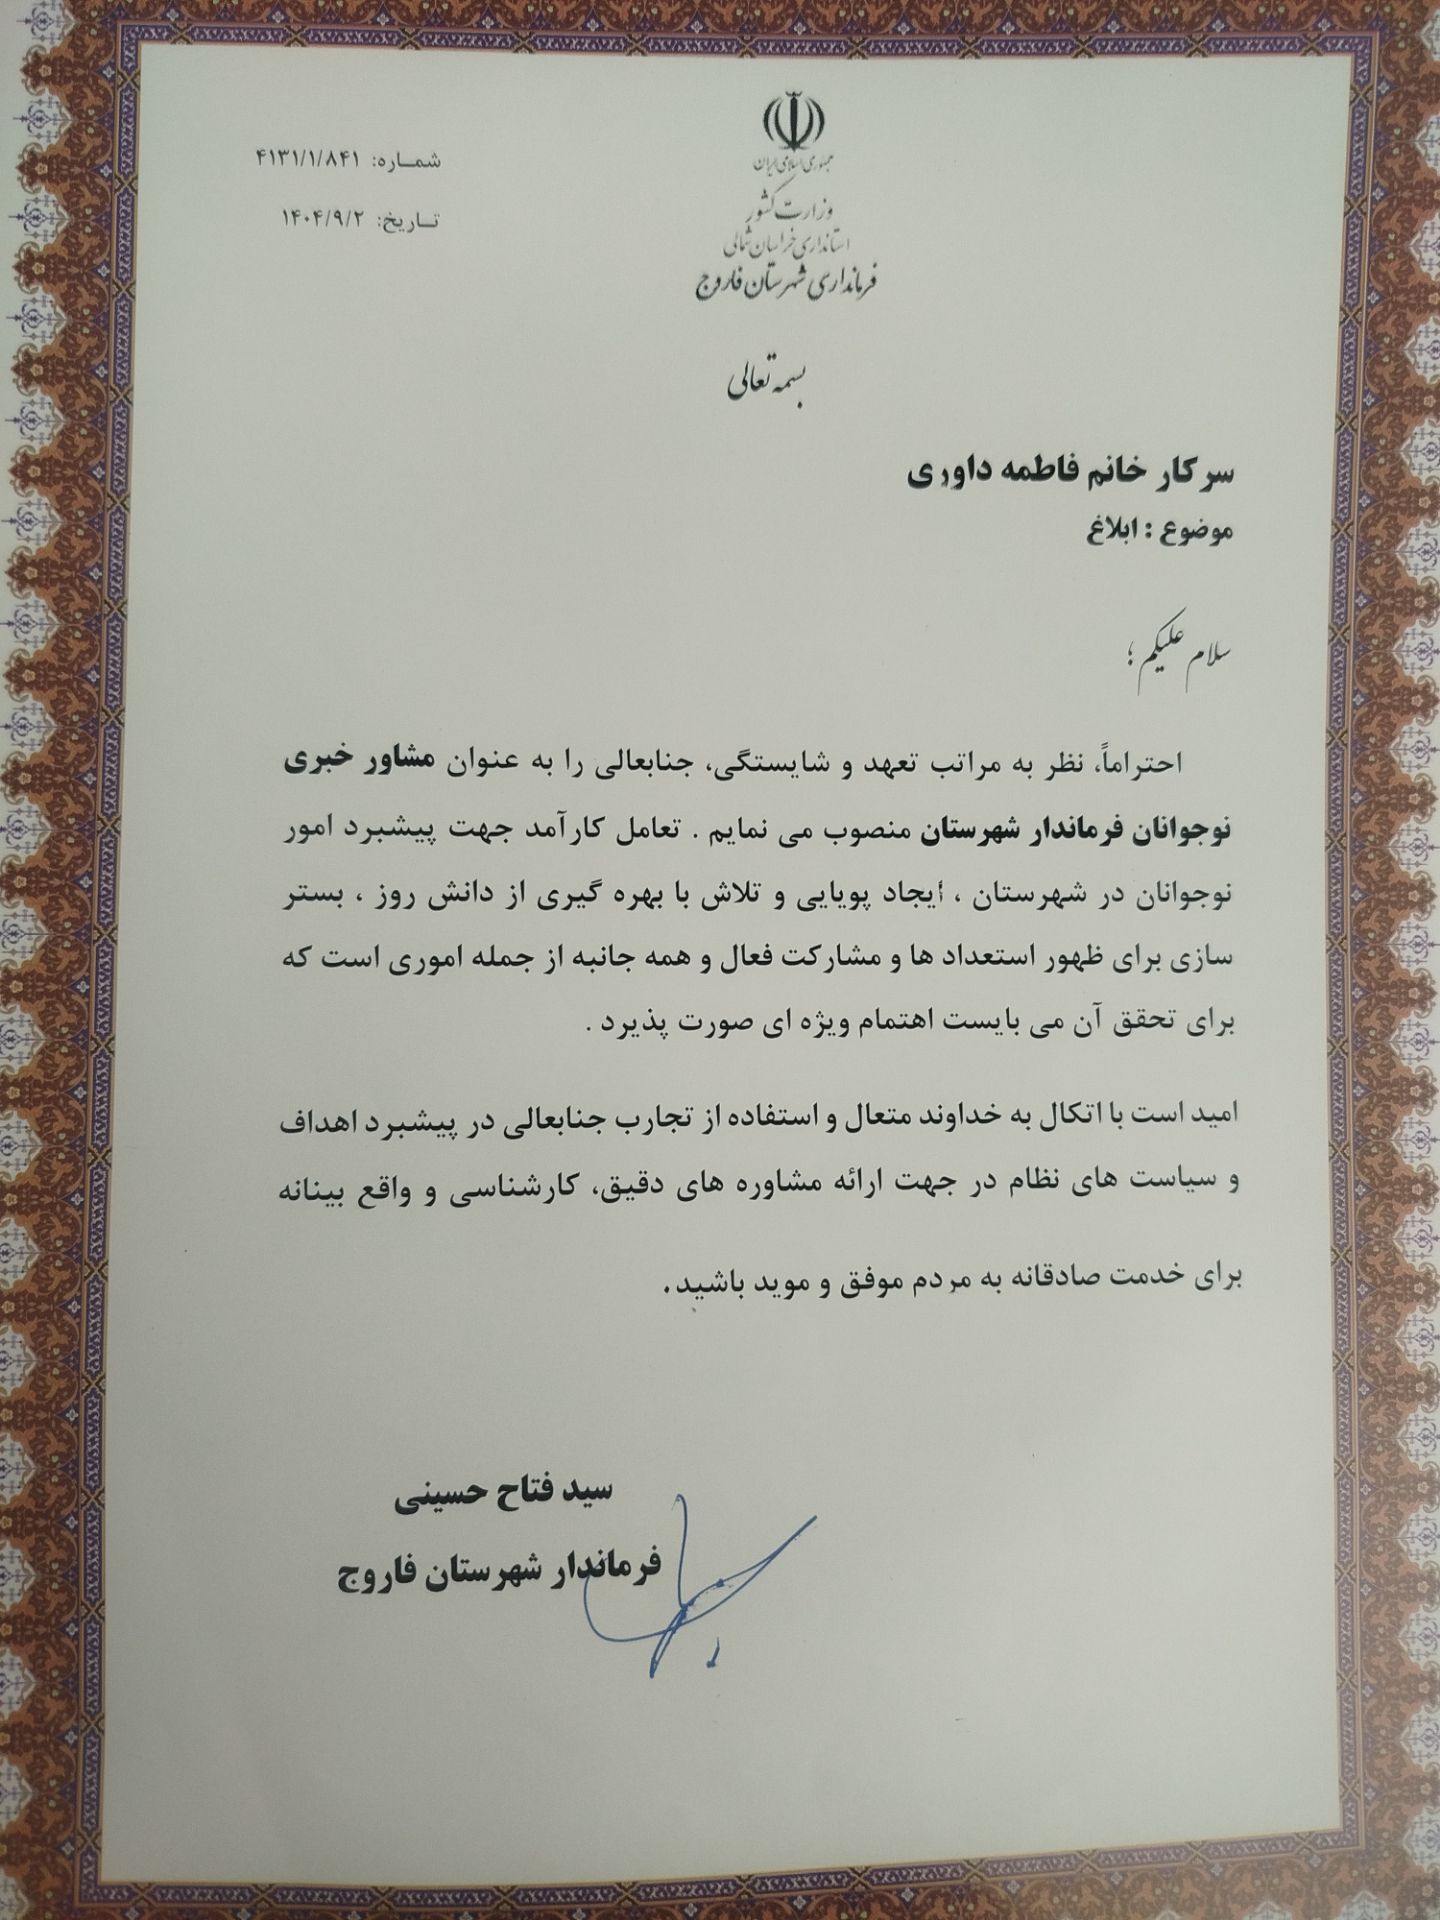 جمهوری اسلامی ایران
وزارت کشور
استانداری خراسان شمالی
فرمانداری شهرستان فاروج
شماره: ۴۱۳۱/۱/۸۴۱
تاریخ: ۱۴۰۴/۹/۲
بسمه تعالی
سرکار خانم فاطمه داوری
موضوع : ابلاغ
سلام علیکم ؛
احتراماً، نظر به مراتب تعهد و شایستگی، جنابعالی را به عنوان مشاور خبری
نوجوانان فرماندار شهرستان منصوب می نمایم . تعامل کارآمد جهت پیشبرد امور
نوجوانان در شهرستان ، ایجاد پویایی و تلاش با بهره گیری از دانش روز ، بستر
سازی برای ظهور استعداد ها و مشارکت فعال و همه جانبه از جمله اموری است که
برای تحقق آن می بایست اهتمام ویژه ای صورت پذیرد .
امید است با اتکال به خداوند متعال و استفاده از تجارب جنابعالی در پیشبرد اهداف
و سیاست های نظام در جهت ارائه مشاوره های دقیق، کارشناسی و واقع بینانه
برای خدمت صادقانه به مردم موفق و موید باشید.
سید فتاح حسینی
فرماندار شهرستان فاروج